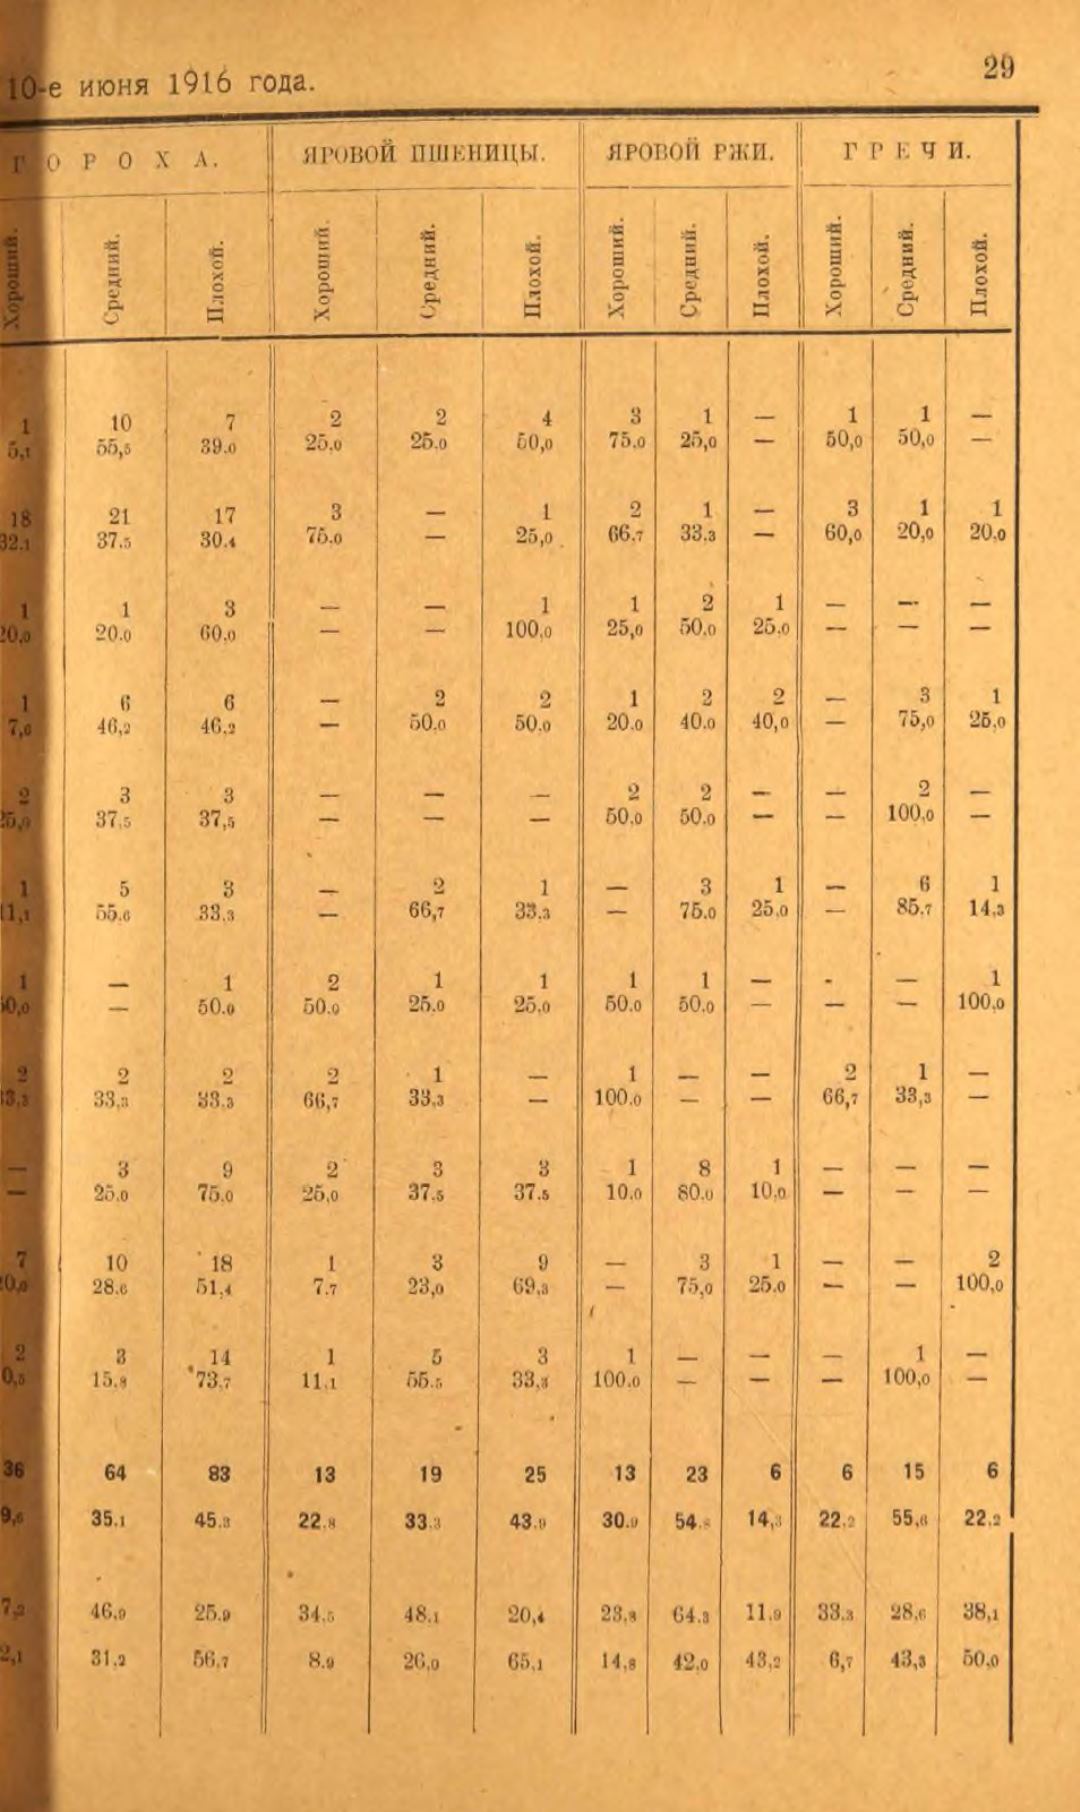 29
10-е июня 1916 года.
Г О Р О Х А. ЯРОВОЙ ПШЕНИЦЫ. ЯРОВОЙ РЖИ. Г Р Е Ч И.
Хороший. Средний. Плохой. Хороший. Средний. Плохой. Хороший. Средний. Плохой. Хороший. Средний. Плохой.
1 10 7 2 2 4 3 1 — 1 1 —
5,1 55,5 39.0 25.0 25.0 50,0 75.0 25,0 — 50,0 50,0 —
18 21 17 3 — 1 2 1 — 3 1 1
32.1 37.5 30.4 75.0 — 25,0 66.7 33.3 — 60,0 20,0 20.0
1 1 3 — — 1 1 2 1 — — —
20,0 20.0 60.0 — — 100,0 25,0 50.0 25.0 — — —
1 6 6 — 2 2 1 2 2 — 3 1
7,6 46,2 46,2 — 50.0 50.0 20.0 40.0 40,0 — 75,0 25,0
2 3 3 — — — 2 2 — — 2 —
25,0 37,5 37,5 — — — 50,0 50.0 — — 100,0 —
1 5 3 — 2 1 — 3 1 — 6 1
11,1 55.6 33,3 — 66,7 33.3 — 75.0 25,0 — 85.7 14,3
1 — 1 2 1 1 1 1 — - — 1
50,0 — 50.0 50.0 25.0 25,0 50.0 50.0 — — — 100,0
2 2 2 2 1 — 1 — — 2 1 —
33,3 33,3 33.3 66,7 33,3 — 100.0 — — 66,7 33,3 —
— 3 9 2 3 3 1 8 1 — — —
— 25.0 75.0 25,0 37.5 37.5 10.0 80.0 10,0 — — —
7 10 18 1 3 9 — 3 1 — — 2
20,0 28.6 51,4 7.7 23,0 69,3 — 75,0 25.0 — — 100,0
2 3 14 1 5 3 1 — — — 1 —
0,5 15,8 73.7 11.1 55.5 33,3 100.0 — — — 100,0 —
36 64 83 13 19 25 13 23 6 6 15 6
9,6 35.1 45.3 22.8 33.3 43.9 30.9 54.8 14,3 22.2 55,6 22.2
7,2 46,9 25.9 34,5 48.1 20,4 23,8 64.3 11.9 33.3 28,6 38,1
2,1 31.2 56,7 8.9 26,0 65,1 14,8 42.0 43,2 6,7 43,3 50,0